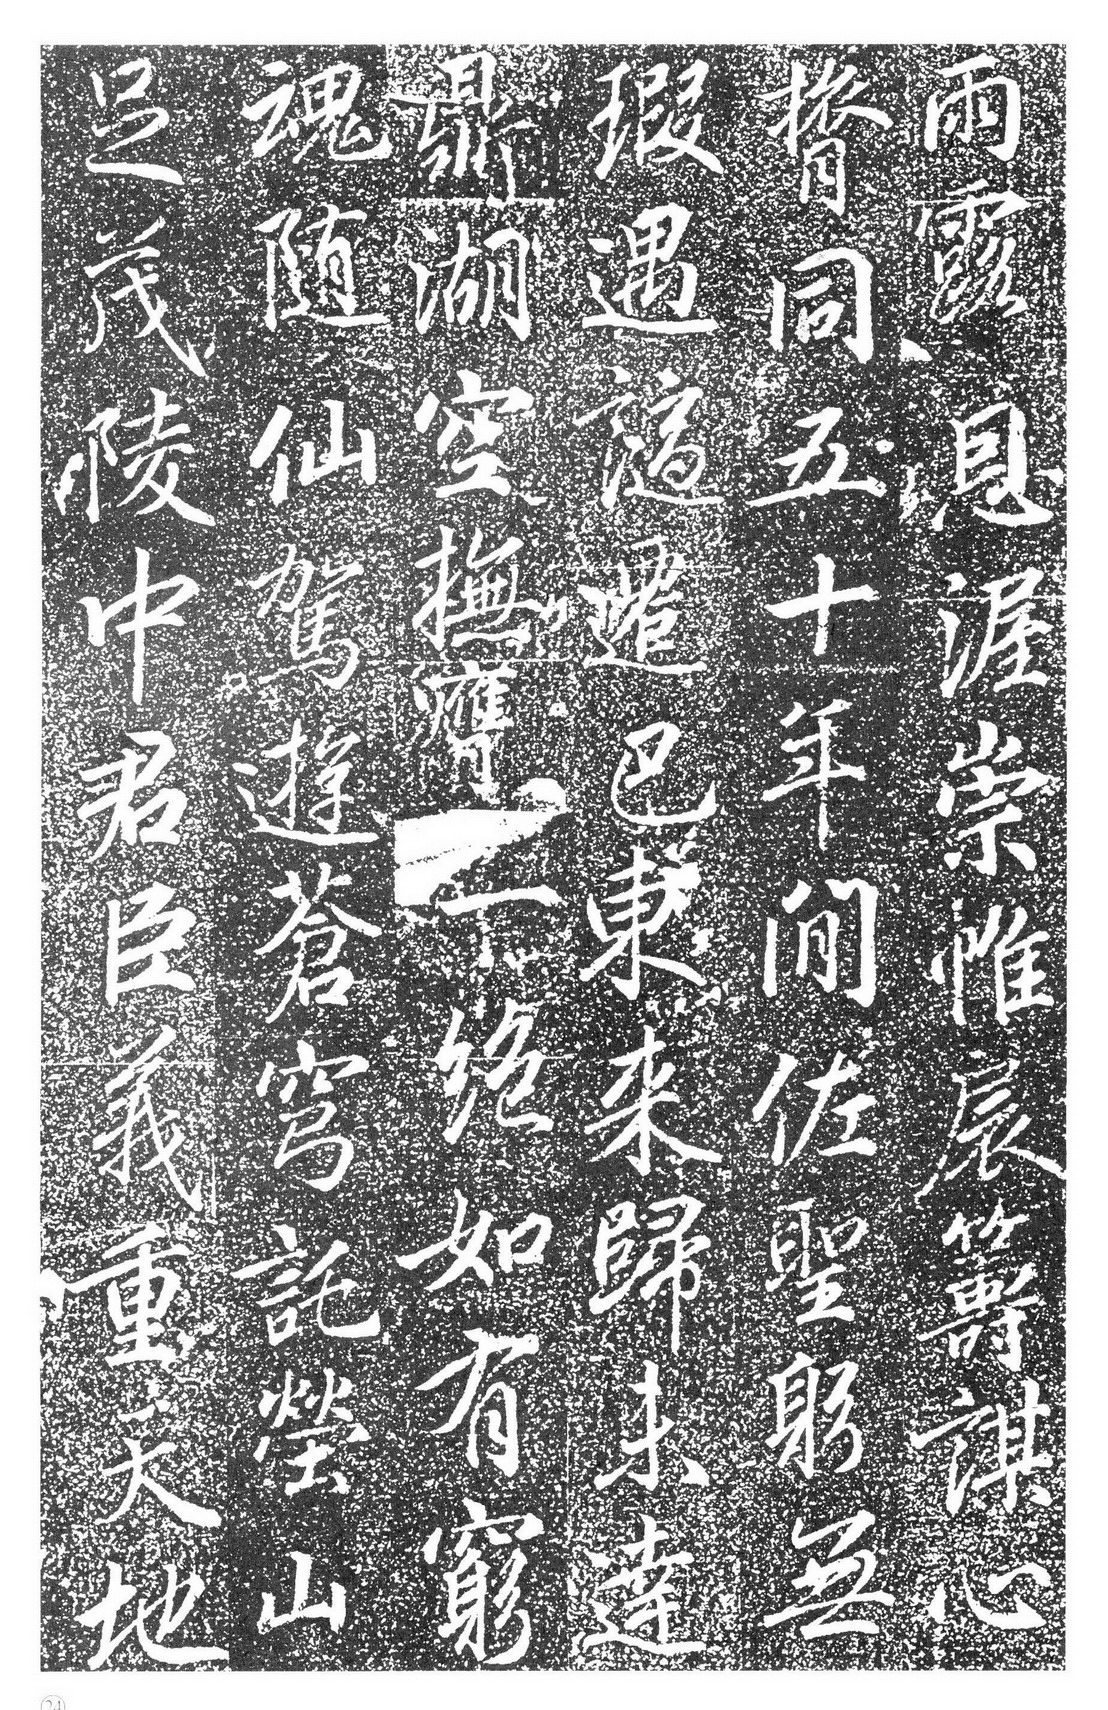 雨露恩渥崇帷扆籌謀心
膂同五十年間佐聖躬無
瑕遇謫遷巴東來歸未達
鼎湖空撫膺一絕如有窮
魂随仙駕遊蒼穹託塋山
足茂陵中君臣義重天地
24